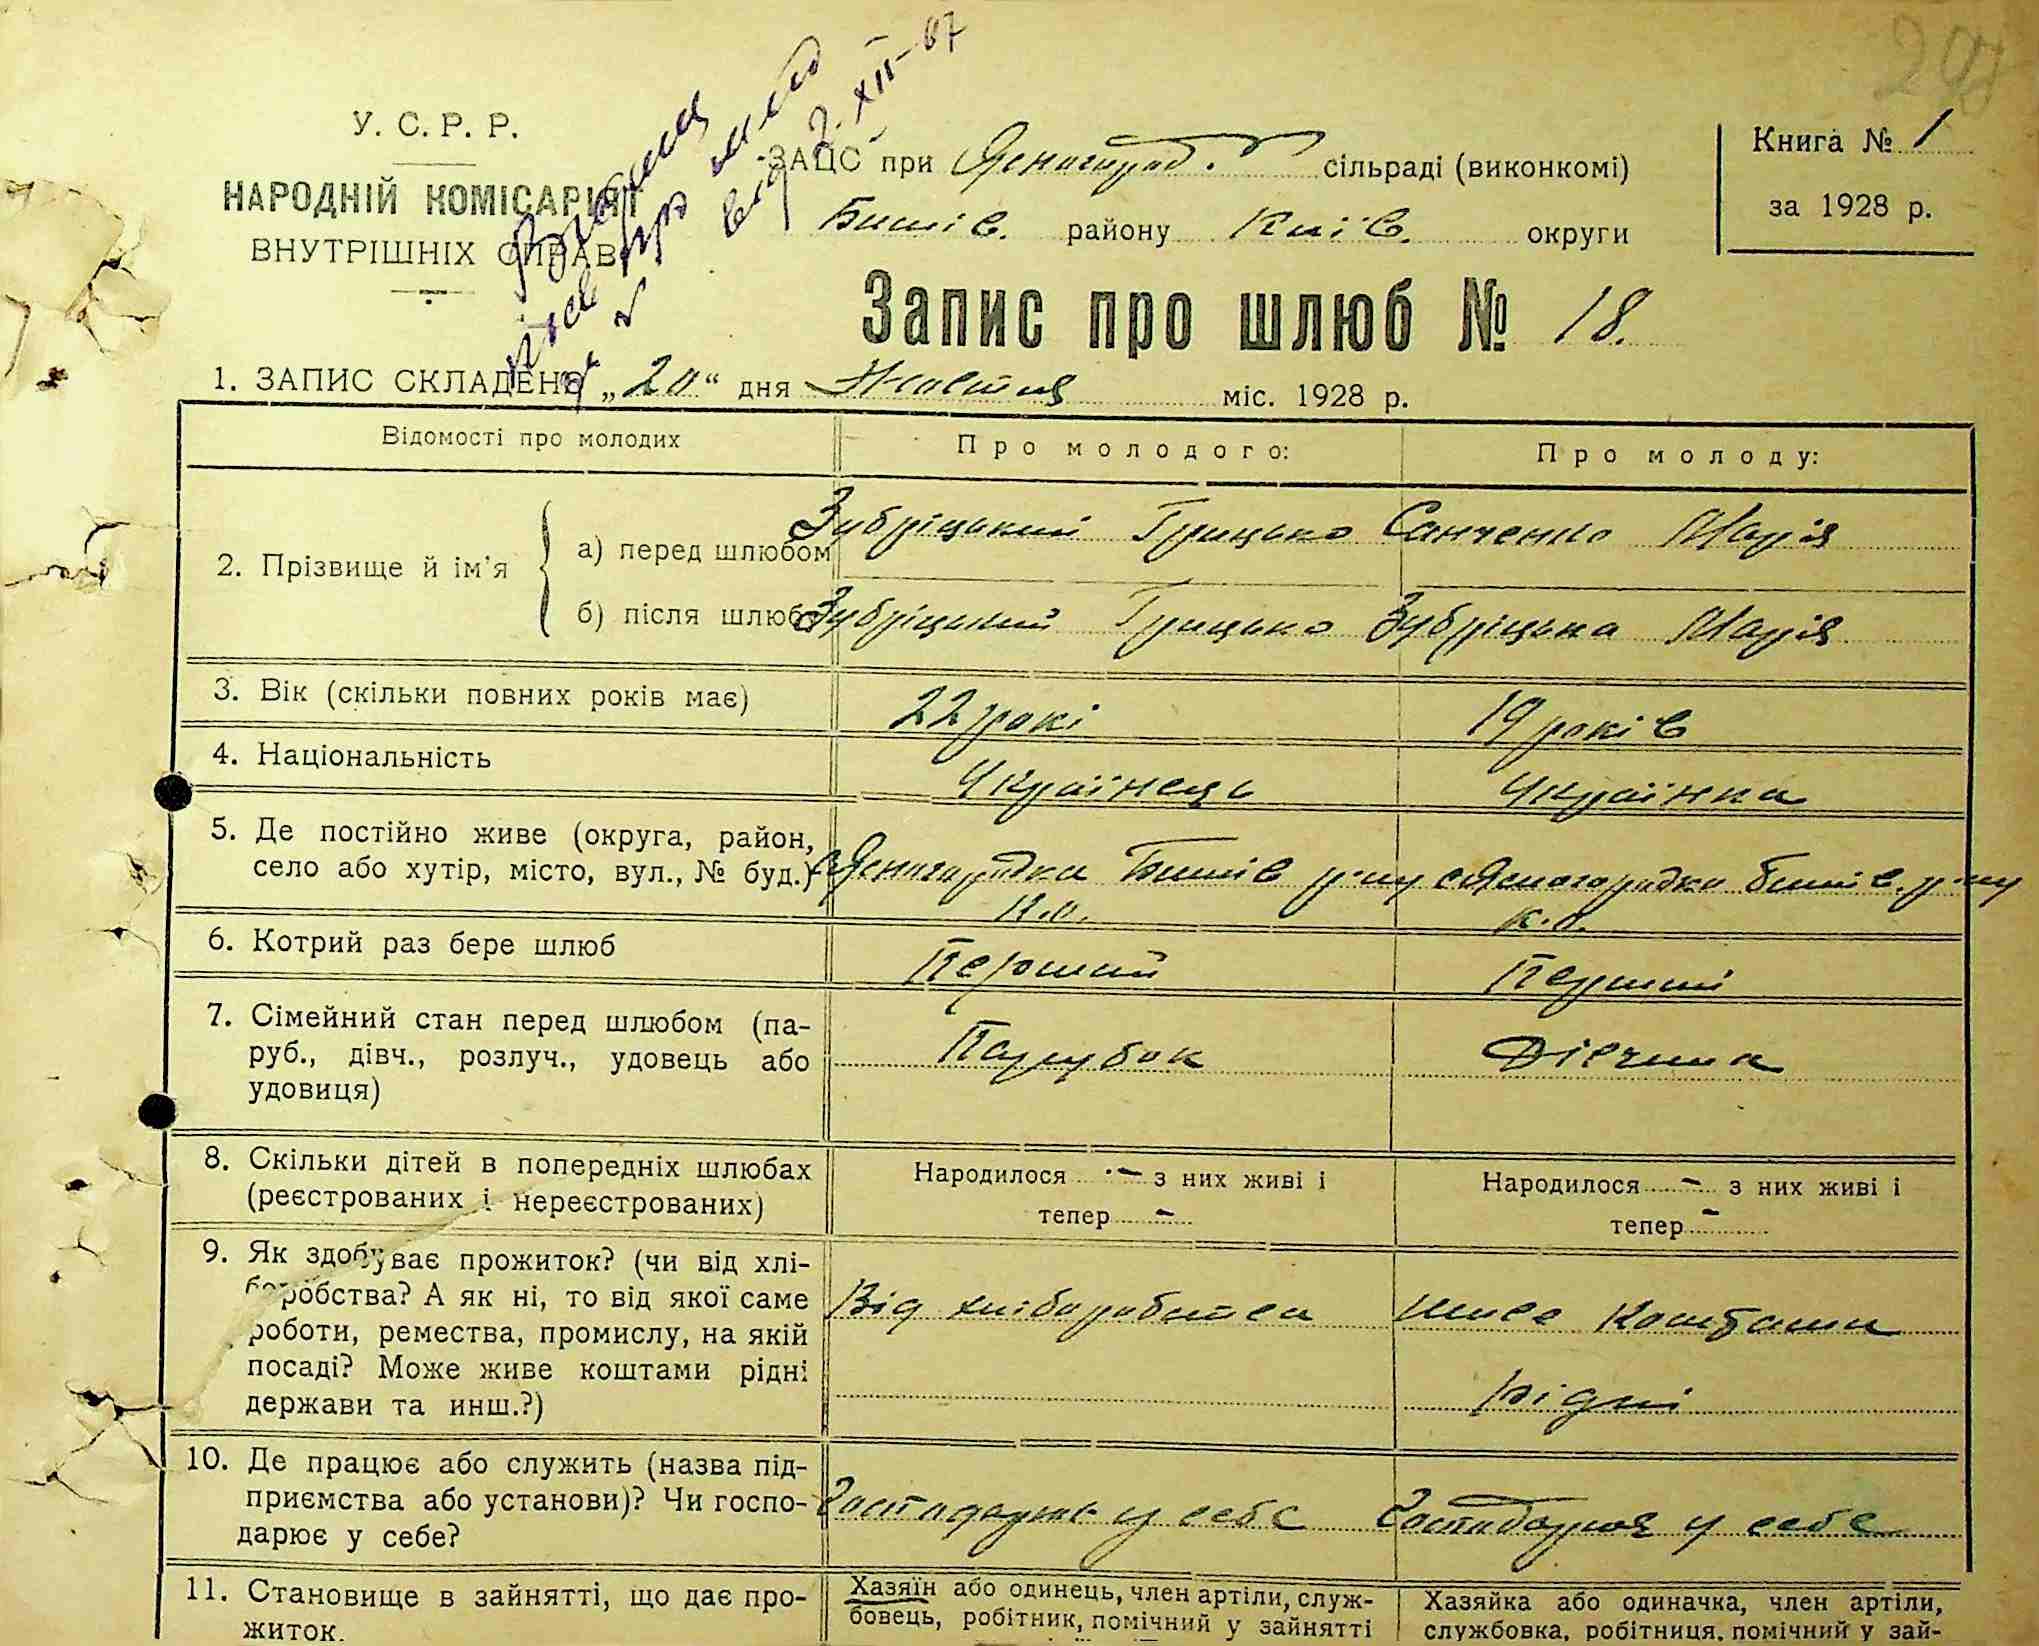 У. С. Р. Р.
НАРОДНІЙ КОМІСАРІЯТ
ВНУТРІШНІХ СПРАВ
Видана
від 2.XII-67
ЗАЦС при Ясногород. сільраді (виконкомі)
Бишів. району Київ. округи
Книга № 1
за 1928 р.
Запис про шлюб № 18.
1. ЗАПИС СКЛАДЕНО „20“ дня Жовтня міс. 1928 р.
Відомості про молодих
Про молодого:
Про молоду:
2. Прізвище й ім'я
а) перед шлюбом
Зубріцький Грицько
Санченко Марія
б) після шлюбу
Зубріцький Грицько
Зубріцька Марія
3. Вік (скільки повних років має)
22 рокі
19 років
4. Національність
Українець
Українка
5. Де постійно живе (округа, район,
село або хутір, місто, вул., № буд.)
с Ясногородка Бишів р-ну
К.о.
с Ясногородка Бишів. р-ну
К.о.
6. Котрий раз бере шлюб
Перший
Перший
7. Сімейний стан перед шлюбом (па-
руб., дівч., розлуч., удовець або
удовиця)
Парубок
Дівчина
8. Скільки дітей в попередніх шлюбах
(реєстрованих і нереєстрованих)
Народилося - з них живі і
тепер -
Народилося - з них живі і
тепер -
9. Як здобуває прожиток? (чи від хлі-
боробства? А як ні, то від якої саме
роботи, ремества, промислу, на якій
посаді? Може живе коштами рідні
держави та инш.?)
Від хліборобства
живе коштами
рідні
10. Де працює або служить (назва під-
приємства або установи)? Чи госпо-
дарює у себе?
Господарює у себе
Господарює у себе
11. Становище в зайнятті, що дає про-
житок.
Хазяїн або одинець, член артіли, служ-
бовець, робітник, помічний у зайнятті
Хазяйка або одиначка, член артіли,
службовка, робітниця, помічний у зай-